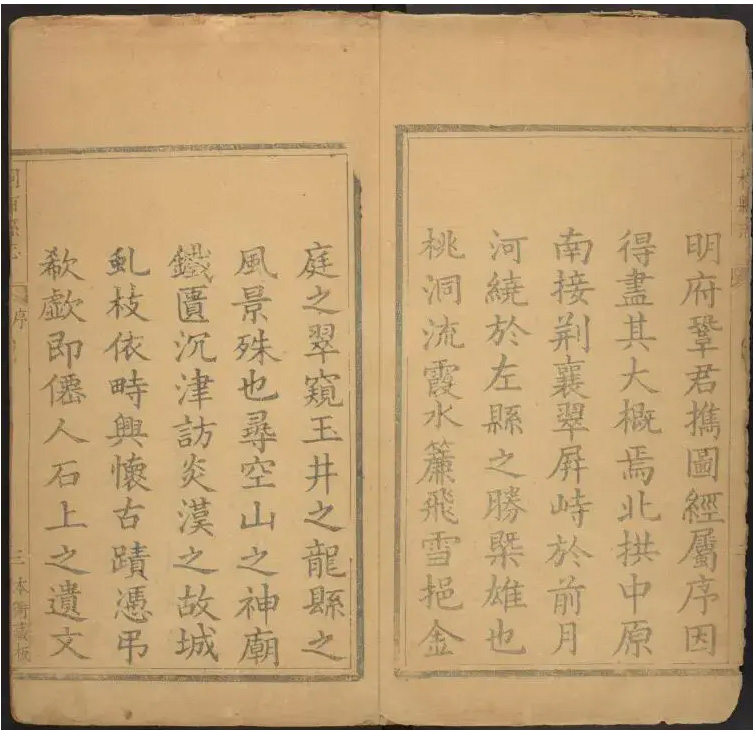 明府鞏君攜圖經屬序因
得盡其大概焉北拱中原
南接荆襄翠屏峙於前月
河繞於左縣之勝槩雄也
桃洞流霞水簾飛雪挹金
庭之翠窺玉井之龍縣之
風景殊也尋空山之神廟
鐵匱沉津訪炎漢之故城
虬枝依畤興懷古蹟憑弔
欷歔即僊人石上之遺文
序
本衙藏板